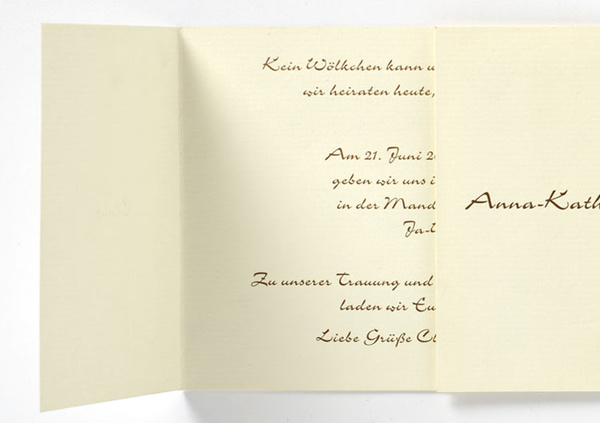 Kein Wölkchen kann
wir heiraten heute,
Am 21. Juni
geben wir uns
in der
Zu unserer Trauung und
laden wir
Liebe Grüße
Anna-